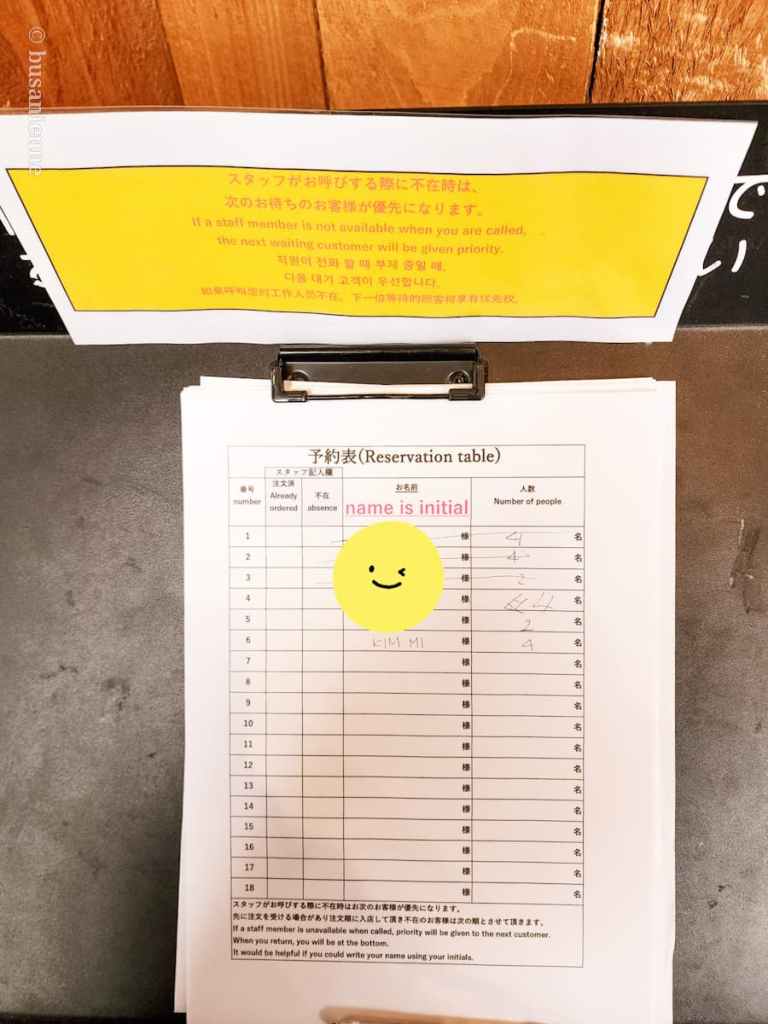 © busanfeme
スタッフがお呼びする際に不在時は、
次のお待ちのお客様が優先になります。
If a staff member is not available when you are called,
the next waiting customer will be given priority.
직원이 전화 할 때 부재 중일 때,
다음 대기 고객이 우선합니다.
如果呼叫您时工作人员不在，下一位等待的顾客将享有优先权。
で
い
予約表(Reservation table)
スタッフ記入欄
番号 number 注文済 Already ordered 不在 absence お名前 name is initial 人数 Number of people
1 様 4 名
2 様 4 名
3 様 2 名
4 様 4 名
5 様 2 名
6 KIM MI 様 4 名
7 様 名
8 様 名
9 様 名
10 様 名
11 様 名
12 様 名
13 様 名
14 様 名
15 様 名
16 様 名
17 様 名
18 様 名
スタッフがお呼びする際に不在時はお次のお客様が優先になります。
先に注文を受ける場合があり注文順に入店して頂き不在のお客様は次の順とさせて頂きます。
If a staff member is unavailable when called, priority will be given to the next customer.
When you return, you will be at the bottom.
It would be helpful if you could write your name using your initials.